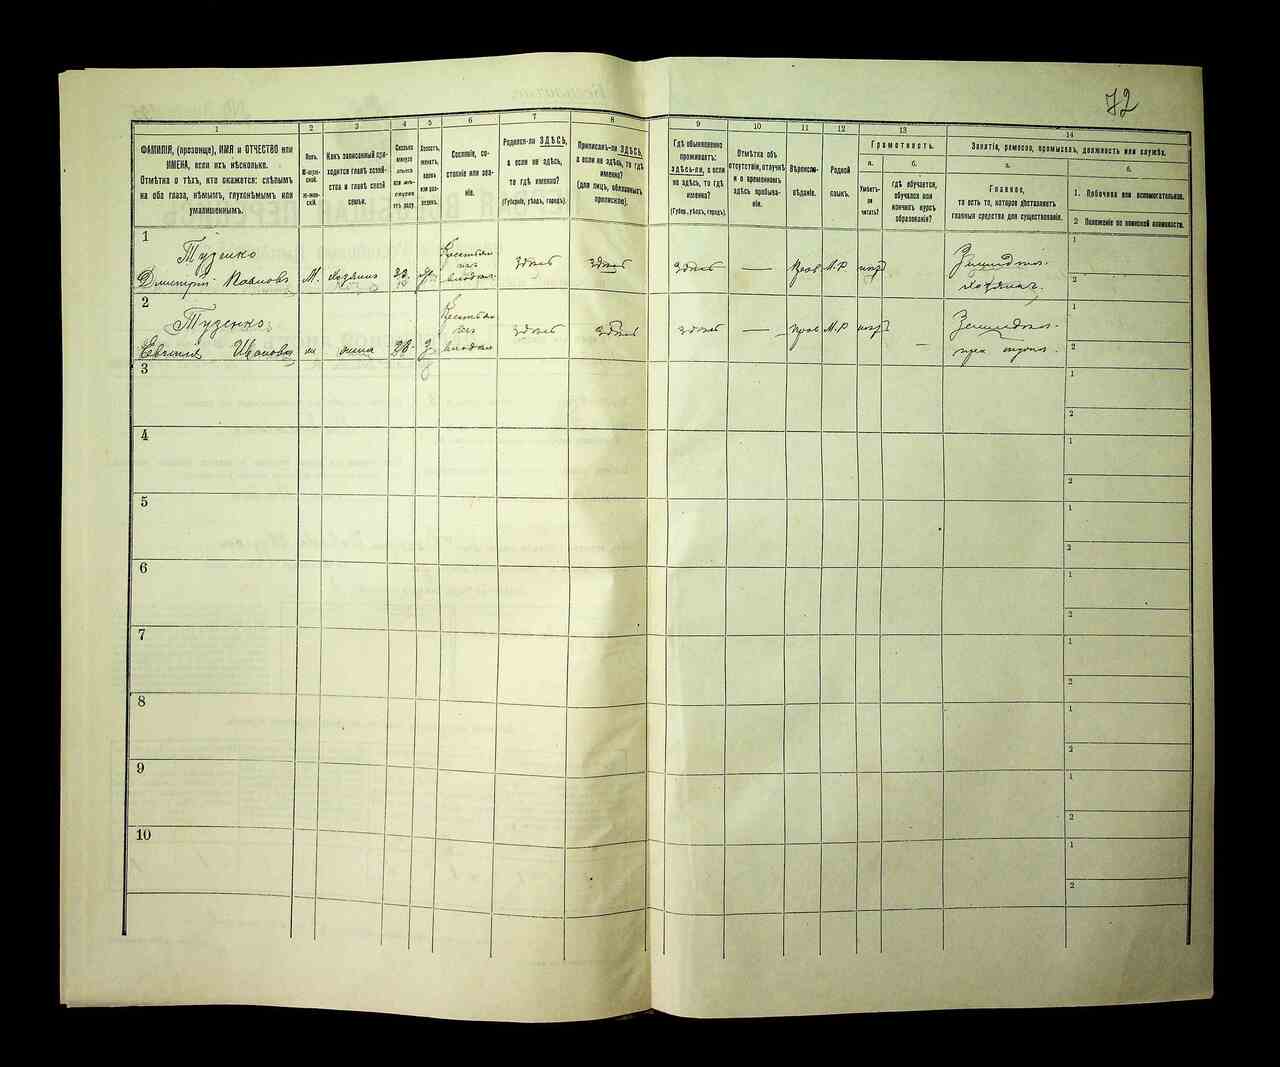 72
1 2 3 4 5 6 7 8 9 10 11 12 13 14
ФАМИЛІЯ, (прозвище), ИМЯ и ОТЧЕСТВО или
ИМЕНА, если ихъ нѣсколько.
Отмѣтка о тѣхъ, кто окажется: слѣпымъ
на оба глаза, нѣмымъ, глухонѣмымъ или
умалишеннымъ.
Полъ.
М-муж-
ской.
Ж-жен-
скій.
Какъ записанный при-
ходится главѣ хозяй-
ства и главѣ своей
семьи.
Сколько
минуло
лѣтъ
или мѣ-
сяцевъ
отъ роду.
Холостъ,
женатъ,
вдовъ
или раз-
веденъ.
Сословіе, со-
стояніе или зва-
ніе.
Родился-ли ЗДѢСЬ,
а если не здѣсь,
то гдѣ именно?
(Губернія, уѣздъ, городъ).
Приписанъ-ли ЗДѢСЬ,
а если не здѣсь, то гдѣ
именно?
(для лицъ, обязанныхъ
припискою).
Гдѣ обыкновенно
проживаетъ:
здѣсь-ли, а если
не здѣсь, то гдѣ
именно?
(Губер., уѣздъ, городъ).
Отмѣтка объ
отсутствіи, отлучкѣ
и о временномъ
здѣсь пребыва-
ніи.
Вѣроиспо-
вѣданіе.
Родной
языкъ.
Грамотность.
а.
Умѣетъ-
ли
читать?
б.
гдѣ обучается,
обучался или
кончилъ курсъ
образованія?
Занятіе, ремесло, промыселъ, должность или служба.
а.
Главное,
то есть то, которое доставляетъ
главныя средства для существованія.
б.
1. Побочное или вспомогательное.
2 Положеніе по воинской повинности.
1
Туденко
Дмитрій Павловъ М. хозяинъ
здѣсь здѣсь здѣсь — прав М.Р
1
2
2
Туденко
Евгенія Иванова ж жена
здѣсь здѣсь здѣсь — прав М.Р
1
2
3
1
2
4
1
2
5
1
2
6
1
2
7
1
2
8
1
2
9
1
2
10
1
2